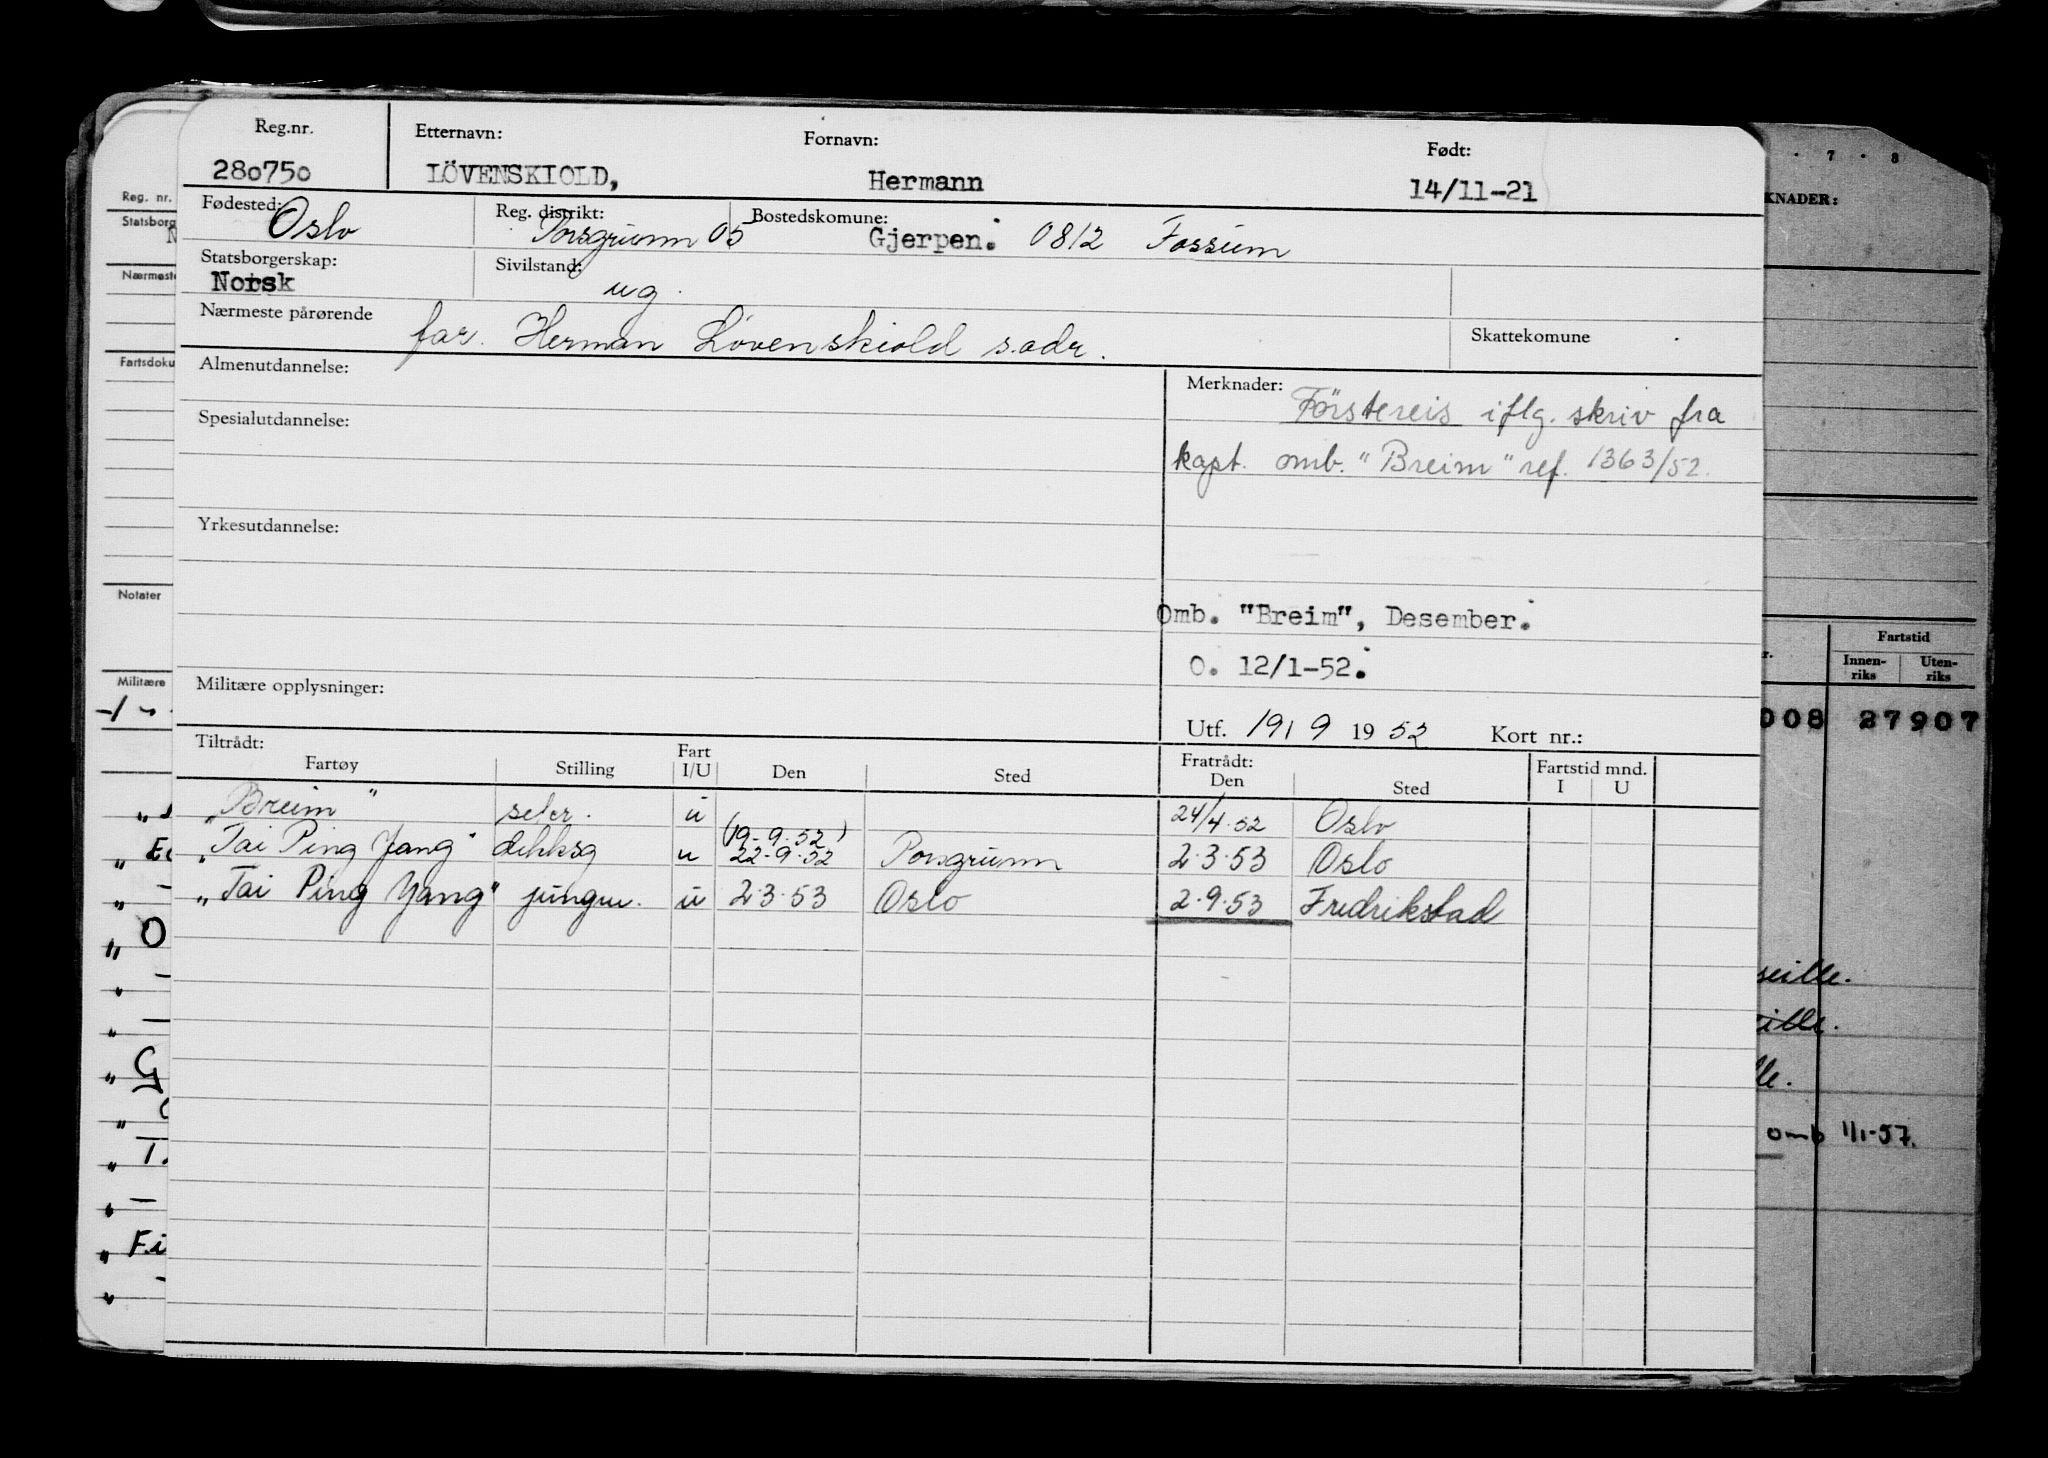 Reg.nr. Etternavn: Fornavn: Født:
280750 LÖVENSKIOLD, Hermann 14/11-21
Fødested: Oslo Reg. distrikt: Porsgrunn 05 Bostedskomune: Gjerpen. 0812 Fossum
Statsborgerskap: Norsk Sivilstand: ug.
Nærmeste pårørende far. Herman Lövenskiold s.adr. Skattekomune
Almenutdannelse:
Merknader: Förstereis iflg. skriv fra
kapt. omb. "Breim" ref. 1363/52.
Spesialutdannelse:
Yrkesutdannelse:
Omb. "Breim", Desember.
O. 12/1-52.
Militære opplysninger:
Utf. 19/9 1952 Kort nr.:
Tiltrådt: Fratrådt: Fartstid mnd.
Fartøy Stilling Fart I/U Den Sted Den Sted I U
"Breim" u 24/4.52 Oslo
(19-9.52)
"Tai Ping Yang" dekksg u 22-9.52 Porsgrunn 2.3.53 Oslo
"Tai Ping Yang" jungm. u 2.3.53 Oslo 2.9.53 Fredrikstad
Reg. nr.
Statsborg
Nærmeste
Fartsdoku
Notater
Militære
7 8
KNADER:
Fartstid
Innen-riks Uten-riks
008 27907
seille.
ille.
lle.
omb 1/1-57.